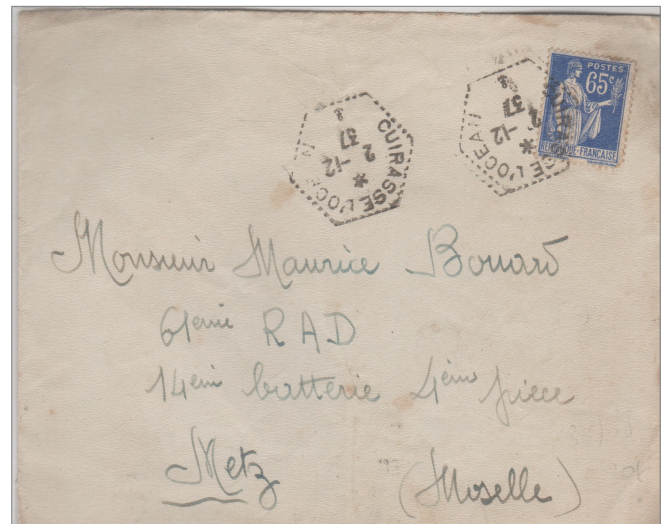 CUIRASSE L'OCEAN
2 -12
37
CUIRASSE L'OCEAN
2 -12
37
POSTES
65c
REPUBLIQUE-FRANÇAISE
Monsieur Maurice Bouard
61eme RAD
14em batterie 4em pièce
Metz (Moselle)